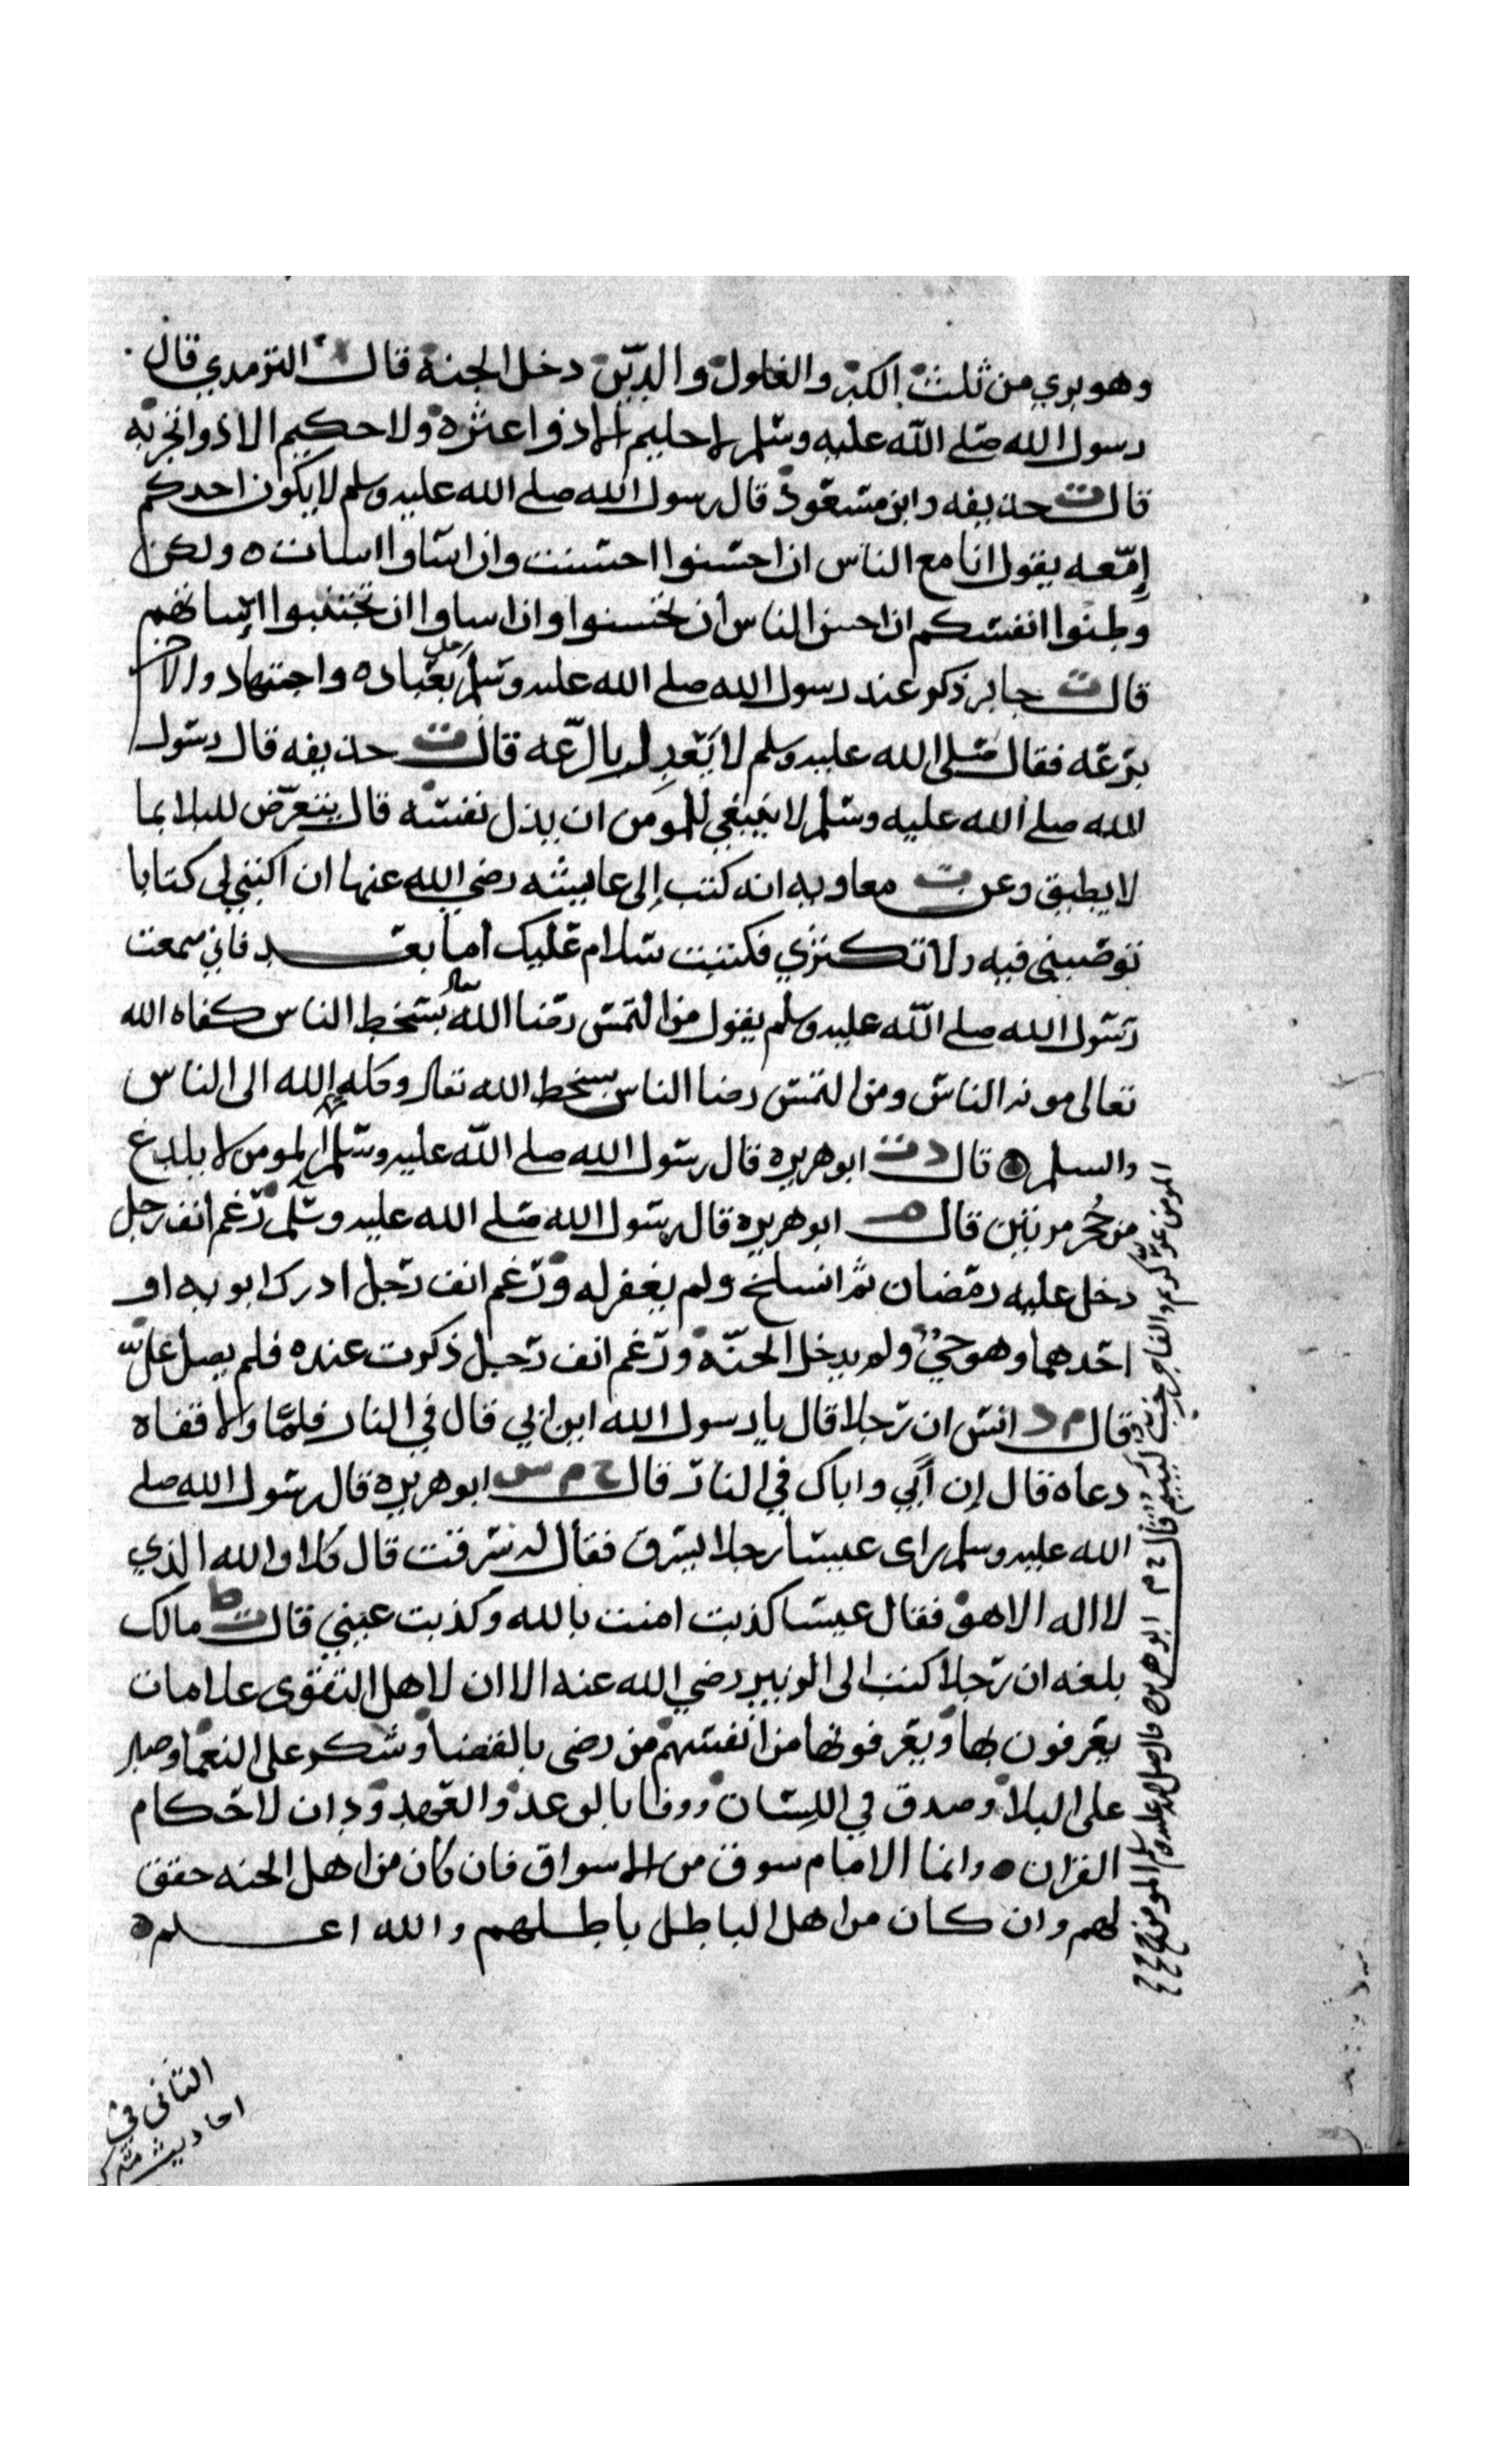 وهو بري من ثلث الكبر والغلول والدين دخل الجنة قال الترمدي قال
رسول الله صلى الله عليه وسلم لا حليم الا ذوا عثره ولا حكيم الا ذوا تجربه
قال ت حذيفه وابن مسعود قال رسول الله صلى الله عليه وسلم لا يكون احدكم
إمّعه يقول انا مع الناس ان احسنوا احسنت وان اساوا اسات ه ولكن
وطنوا انفسكم ان احسن الناس ان تحسنوا وان اساوا ان تجتنبوا اساتهم
قال ت جابر ذكر عند رسول الله صلى الله عليه وسلم رجل بعباده واجتهاد والاخر
برعه فقال صلى الله عليه وسلم لا يعدل بالرعه قال ت حذيفه قال رسول
الله صلى الله عليه وسلم لا ينبغي للمومن ان يذل نفسه قال يتعرض للبلا بما
لا يطيق وعن ت معاويه انه كتب إلى عايشه رضي الله عنها ان اكتبي لي كتابا
توصيني فيه ولا تكثري فكتبت سلام عليك اما بعد فاني سمعت
رسول الله صلى الله عليه وسلم يقول من التمس رضا الله تعالى بسخط الناس كفاه الله
تعالى مونه الناس ومن التمس رضا الناس بسخط الله تعالى وكله الله الى الناس
والسلم ه قال د ت ابو هريره قال رسول الله صلى الله عليه وسلم المومن لا يلدغ
من جُحر مرتين قال م ابو هريره قال رسول الله صلى الله عليه وسلم رغم انف رجل
دخل عليه رمضان ثم انسلخ ولم يغفر له ورغم انف رجل ادرك ابويه او
احدهما وهو حيّ ولم يدخل الجنّة ورغم انف رجل ذكرت عنده فلم يصل عليّ
قال م د انس ان رجلا قال يا رسول الله اين ابي قال في النار فلما ولا قفاه
دعاه قال إن أبي واباك في النار قال خ م س ابو هريره قال رسول الله صلى
الله عليه وسلم راى عيسا رجلا يسرق فقال له سرقت قال كلا والله الذي
لا اله الا هو فقال عيسا كذبت امنت بالله وكذبت عيني قال ط مالك
بلغه ان رجلا كتب الى الزبير رضي الله عنه الا ان لاهل التقوى علامات
يعرفون بها ويعرفونها من انفسهم من رضى بالقضا وشكر على النعما وصبر
على البلا وصدق في اللسان ووفا بالوعد والعهد ودان لاحكام
القران ه وانما الامام سوق من الاسواق فان كان من اهل الحنه حقق
لهم وان كان من اهل الباطل باطلهم والله اعلم ه
قال خ م ابو هريره قال صلى الله عليه وسلم المومن
المومن غرّ كريم والفاجر خب لييم
الثانى في
احاديث